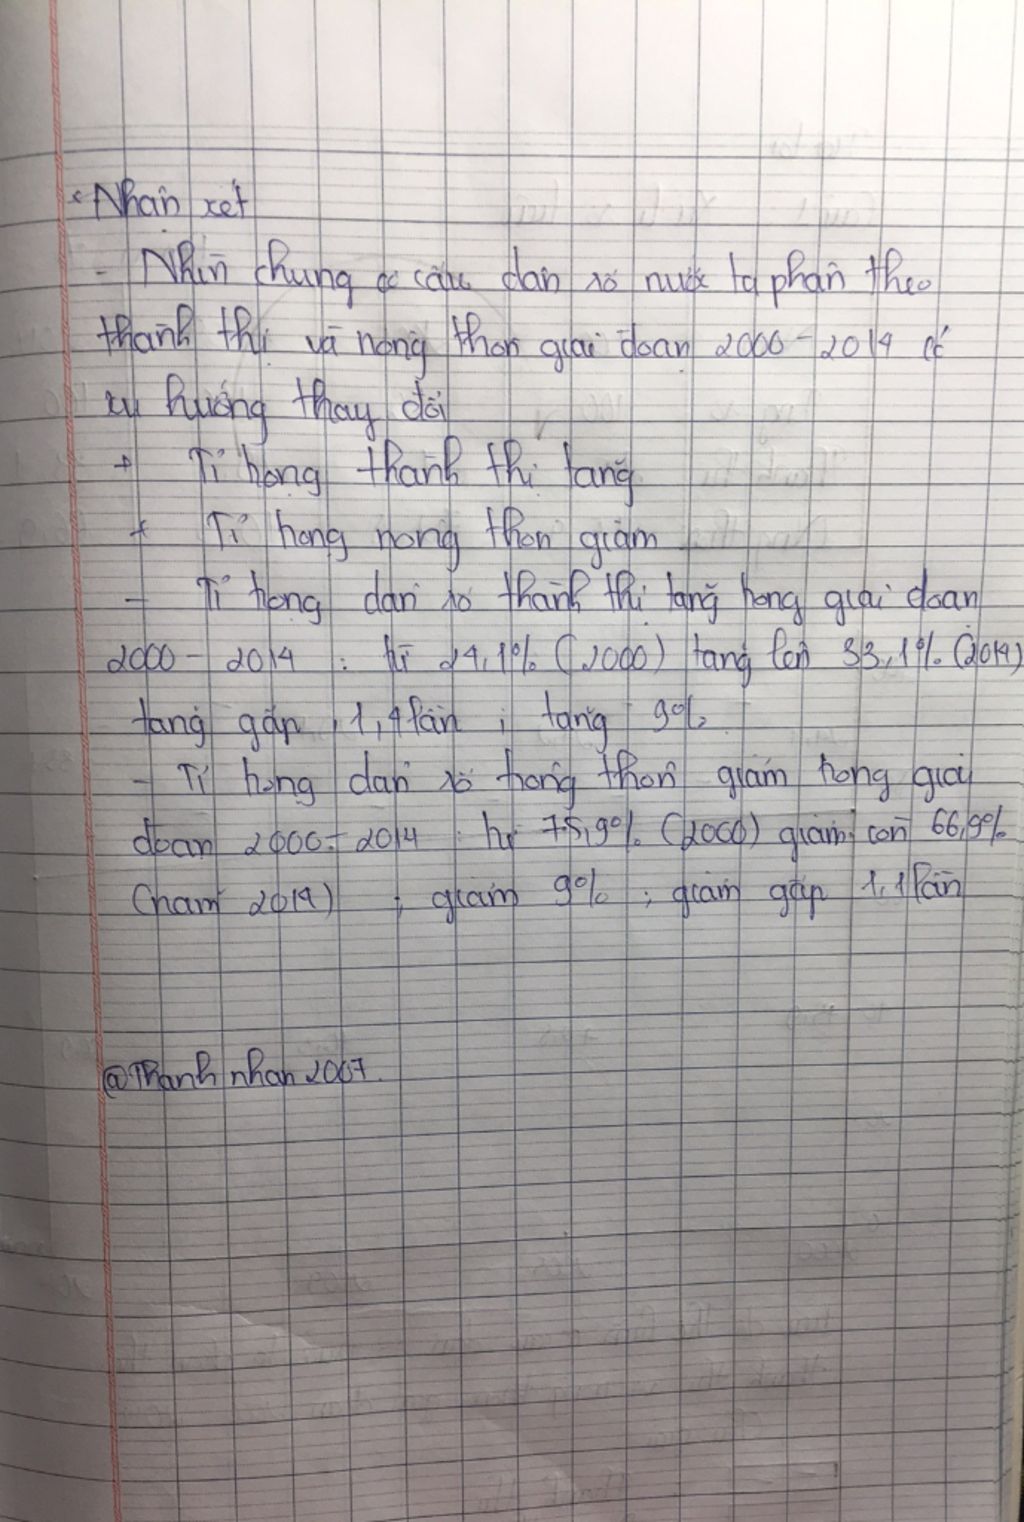 * Nhận xét
- Nhìn chung cơ cấu dân số nước ta phân theo
thành thị và nông thôn giai đoạn 2000 - 2014 có
xu hướng thay đổi
+ Tỉ trọng thành thị tăng
+ Tỉ trọng nông thôn giảm
- Tỉ trọng dân số thành thị tăng trong giai đoạn
2000 - 2014 : từ 24,1% (2000) tăng lên 33,1% (2014)
tăng gấp 1,4 lần ; tăng 9%
- Tỉ trọng dân số nông thôn giảm trong giai
đoạn 2000 - 2014 : từ 75,9% (2000) giảm còn 66,9%
(năm 2014) ; giảm 9% ; giảm gấp 1,1 lần
@Thanh nhan 2007.